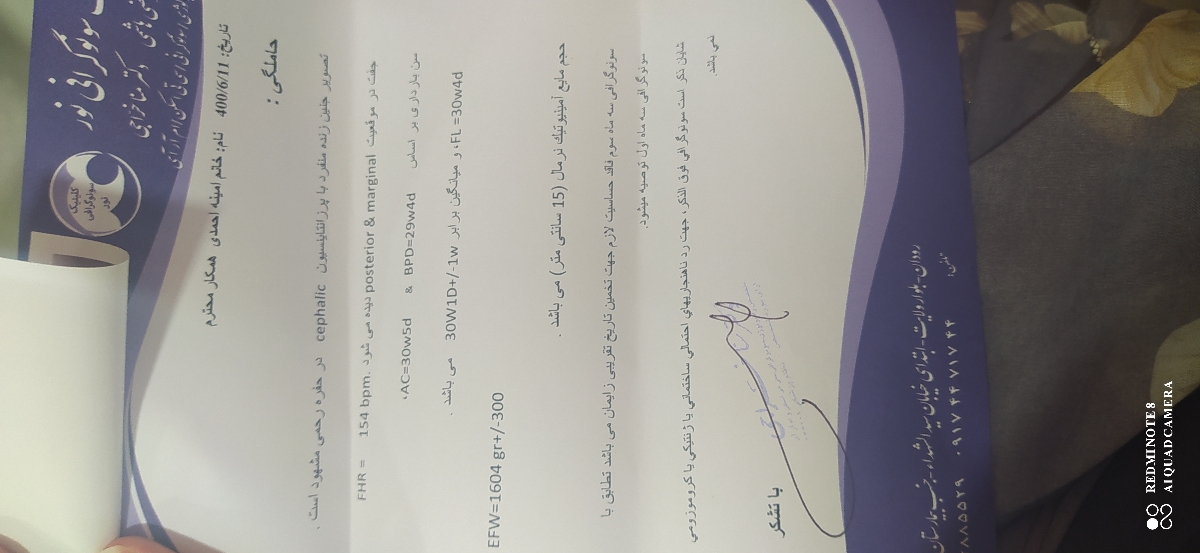 سونوگرافی نور
کلینیک
سونوگرافی
نور
تاریخ: 400/6/11 نام: خانم امینه احمدی همکار محترم
حاملگی :
تصویر جنین زنده منفرد با پرزانتاسیون cephalic در حفره رحمی مشهود است .
جفت در موقعیت posterior & marginal دیده می شود. FHR = 154 bpm
سن بارداری بر اساس BPD=29w4d & AC=30w5d،
FL =30w4d، و میانگین برابر 30W1D+/-1w می باشد .
EFW=1604 gr+/-300
حجم مایع آمنیوتیک نرمال (15 سانتی متر) می باشد .
سونوگرافی سه ماه سوم فاقد حساسیت لازم جهت تخمین تاریخ تقریبی زایمان می باشد تطابق با
سونوگرافی سه ماه اول توصیه میشود.
شایان ذکر است سونوگرافی فوق الذکر، جهت رد ناهنجاریهای احتمالی ساختمانی یا ژنتیکی یا کروموزومی
نمی باشد.
با تشکر
رودان-بلوار ولایت-ابتدای خیابان سیدالشهداء-جنب بیمارستان
تلفن:
۰۹۱۷۴۴۷۱۷۴۴
۸۸۵۵۲۹
REDMI NOTE 8
AI QUAD CAMERA